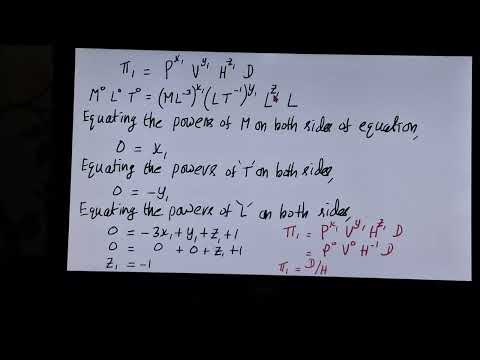 π₁ = ρ^x₁ V^y₁ H^z₁ D
M⁰ L⁰ T⁰ = (ML⁻³)^x₁ (LT⁻¹)^y₁ L^z₁ L
Equating the powers of M on both sides of equation,
0 = x₁
Equating the powers of 'T' on both sides,
0 = -y₁
Equating the powers of 'L' on both sides,
0 = -3x₁ + y₁ + z₁ + 1
0 = 0 + 0 + z₁ + 1
z₁ = -1
π₁ = ρ^x₁ V^y₁ H^z₁ D
= ρ⁰ V⁰ H⁻¹ D
π₁ = D/H